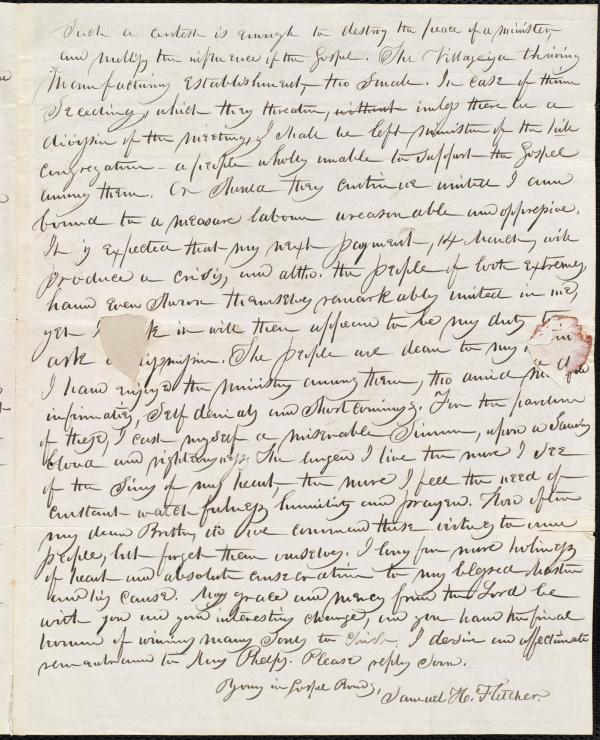 Such a contest is enough to destroy the peace of a minister
and nullify the influence of the Gospel. The Village is a thriving
Manufacturing Establishment, tho small. In case of their
Seceeding, which they threaten, without unless there be a
division of the meeting, I shall be left minister of the little
congregation - a people wholly unable to support the Gospel
among them. Or should they continue united I am
bound to a measure labour unreasonable and oppressive.
It is expected that my next payment, 14 March, will
produce a crisis, and altho. the people of both extremes
have even shown themselves remarkably united in me,
yet I k it will then appear to be my duty to
ask a dismission. The people are dear to my
I have enjoyed the ministry among them, tho amid
infirmaties, self denials and short comings. For the pardon
of these, I cast myself a miserable Sinner, upon a Saviours
blood and righteousness. The longer I live the more I see
of the Sins of my heart, the more I feel the need of
constant watchfulness humility and prayer. How often
my dear Brother, do we commend these virtues to our
people, but forget them ourselves. I long for more holiness
of heart and absolute consecration to my blessed Master
and his cause. May grace and mercy from the Lord be
with you and your interesting charge, and you have the final
honour of winning many souls to Christ. I desire an affectionate
remembrance to Mrs Phelps. Please reply soon.
Yours in Gospel Bonds,
Samuel H. Fletcher.